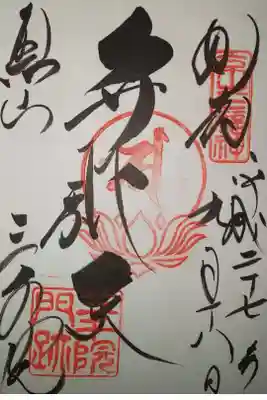 奉拝 平成二十七年
九月十八日
弁財天
魚山 三千院
三千院
門跡